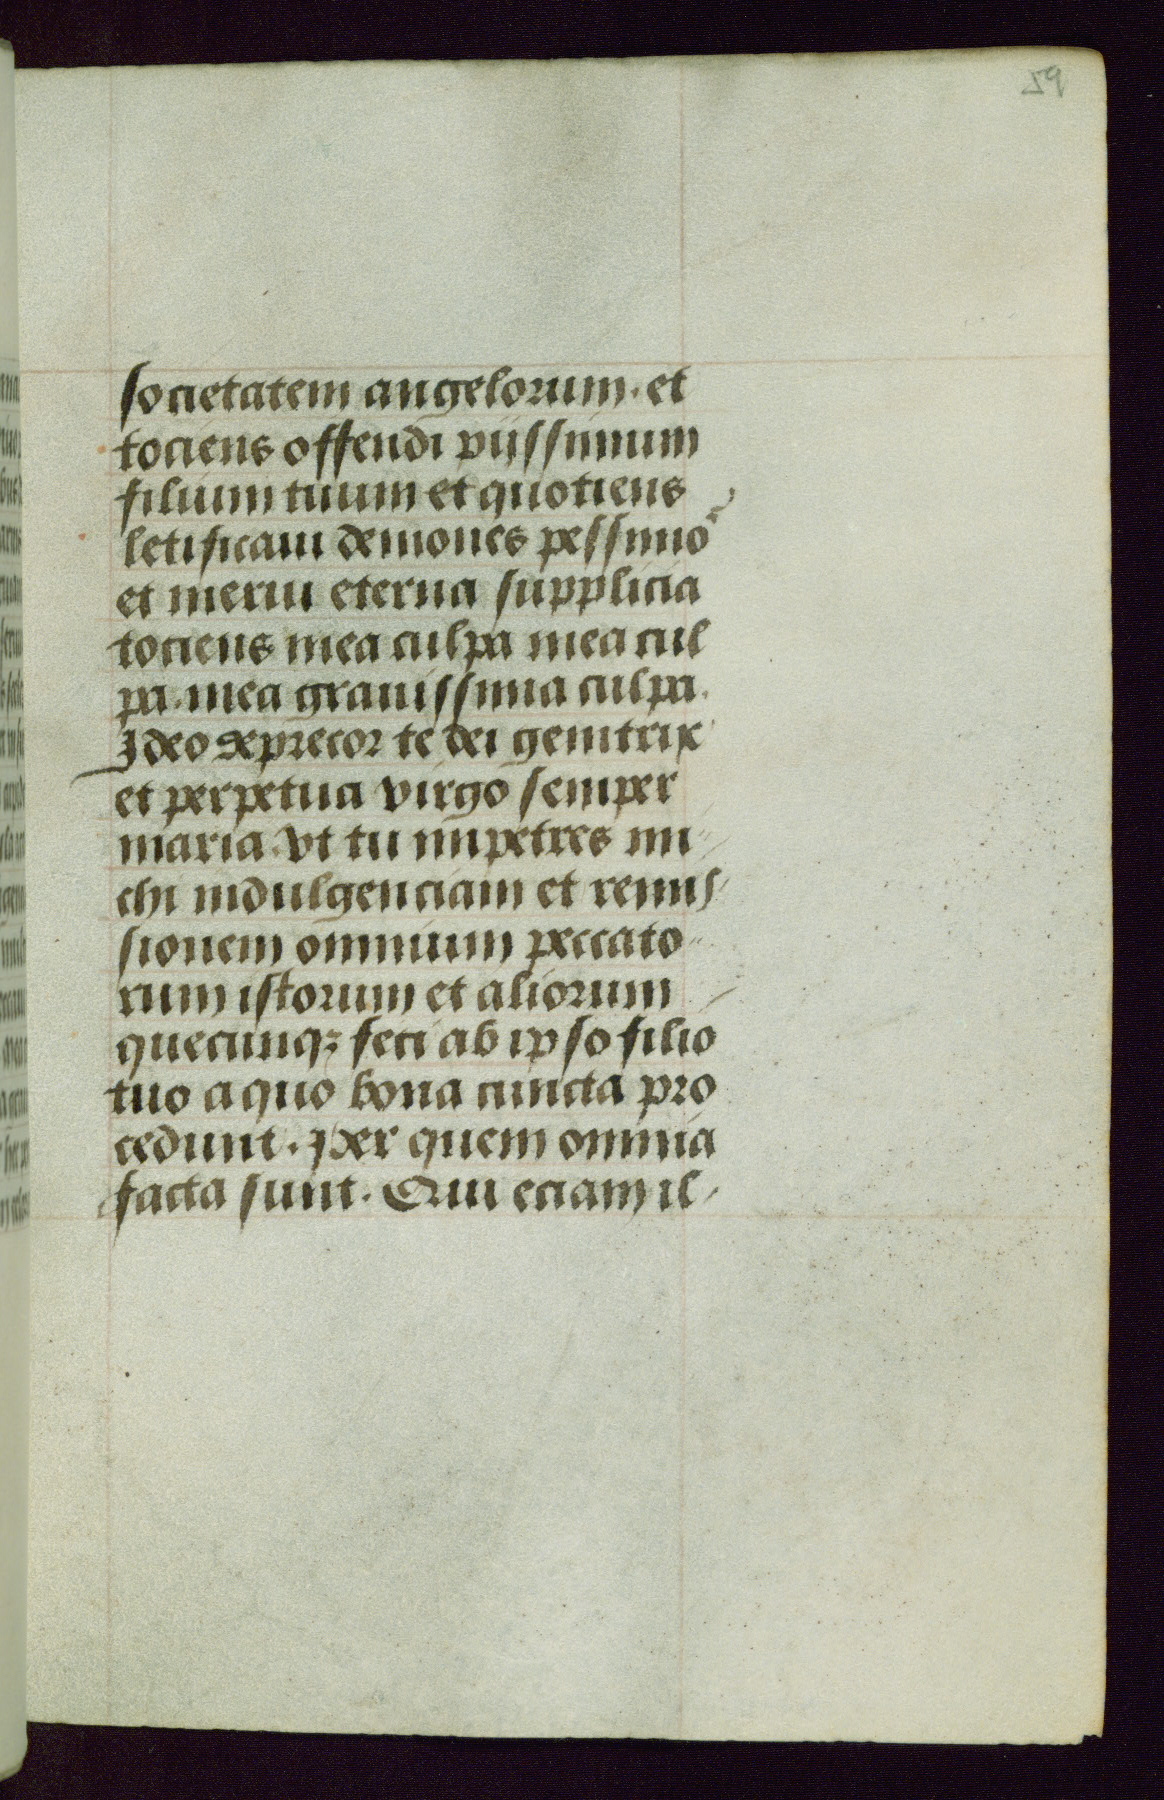 59
societatem angelorum. et
tociens offendi piissimum
filium tuum et quotiens
letificaui demones pessimos
et merui eterna supplicia
tociens mea culpa mea cul
pa. mea grauissima culpa.
Ideo deprecor te dei genitrix
et perpetua virgo semper
maria. vt tu impetres mi-
chi indulgenciam et remis-
sionem omnium peccato-
rum istorum et aliorum
quecunqꝫ feci ab ipso filio
tuo a quo bona cuncta pro
cedunt. Per quem omnia
facta sunt. Qui eciam il-